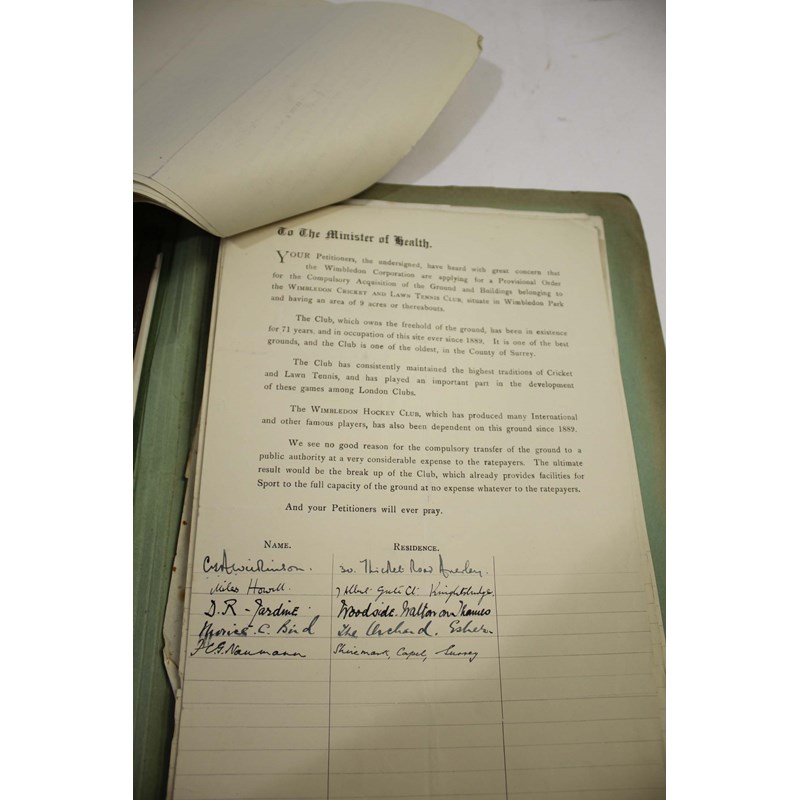 To The Minister of Health.
YOUR Petitioners, the undersigned, have heard with great concern that
the Wimbledon Corporation are applying for a Provisional Order
for the Compulsory Acquisition of the Ground and Buildings belonging to
the WIMBLEDON CRICKET AND LAWN TENNIS CLUB, situate in Wimbledon Park
and having an area of 9 acres or thereabouts.
The Club, which owns the freehold of the ground, has been in existence
for 71 years, and in occupation of this site ever since 1889. It is one of the best
grounds, and the Club is one of the oldest, in the County of Surrey.
The Club has consistently maintained the highest traditions of Cricket
and Lawn Tennis, and has played an important part in the development
of these games among London Clubs.
The WIMBLEDON HOCKEY CLUB, which has produced many International
and other famous players, has also been dependent on this ground since 1889.
We see no good reason for the compulsory transfer of the ground to a
public authority at a very considerable expense to the ratepayers. The ultimate
result would be the break up of the Club, which already provides facilities for
Sport to the full capacity of the ground at no expense whatever to the ratepayers.
And your Petitioners will ever pray.
NAME. RESIDENCE.
Wilkinson. 30. Thicket Road Anerley.
Miles Howell. 7 Albert Gate Ct. Knightsbridge.
D.R. Jardine. Woodside. Walton on Thames
C. Bird The Orchard. Esher.
F.C.G. Naumann Shiremark, Capel, Surrey